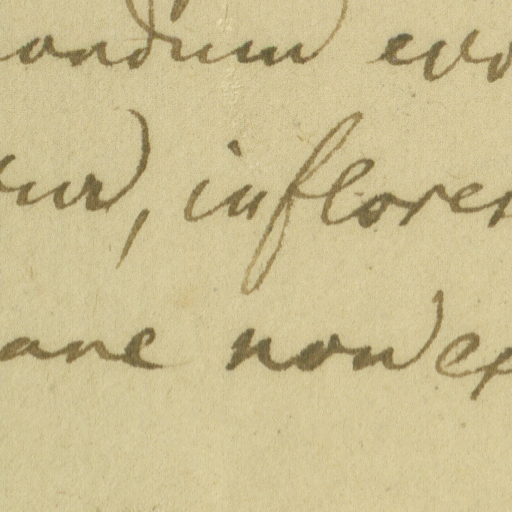 ondum evo
ur, inflores
ane non ex